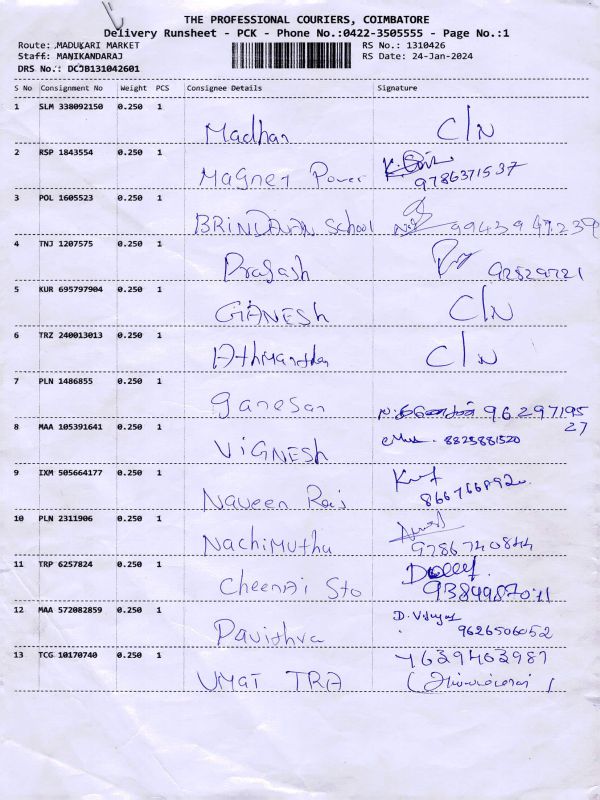 THE PROFESSIONAL COURIERS, COIMBATORE
Delivery Runsheet - PCK - Phone No.:0422-3505555 - Page No.:1
Route: MADUKARI MARKET RS No.: 1310426
Staff: MANIKANDARAJ RS Date: 24-Jan-2024
DRS No.: DCJB131042601
S No Consignment No Weight PCS Consignee Details Signature
1 SLM 338092150 0.250 1
Madhan C/N
2 RSP 1843554 0.250 1
Magnet Power 9786371537
3 POL 1605523 0.250 1
BRINDAVAN School 9943947239
4 TNJ 1207575 0.250 1
Pragash 92829721
5 KUR 695797904 0.250 1
GANESh C/N
6 TRZ 240013013 0.250 1
C/N
7 PLN 1486855 0.250 1
ganesan 96297195
27
8 MAA 105391641 0.250 1
ViGNESh 8825881520
9 IXM 505664177 0.250 1
Naveen Raj
10 PLN 2311906 0.250 1
Nachimuthu 9786740844
11 TRP 6257824 0.250 1
Chennai Sto
12 MAA 572082859 0.250 1
Pavithra 9626506052
13 TCG 10170740 0.250 1
UMGT TRA 4639463981